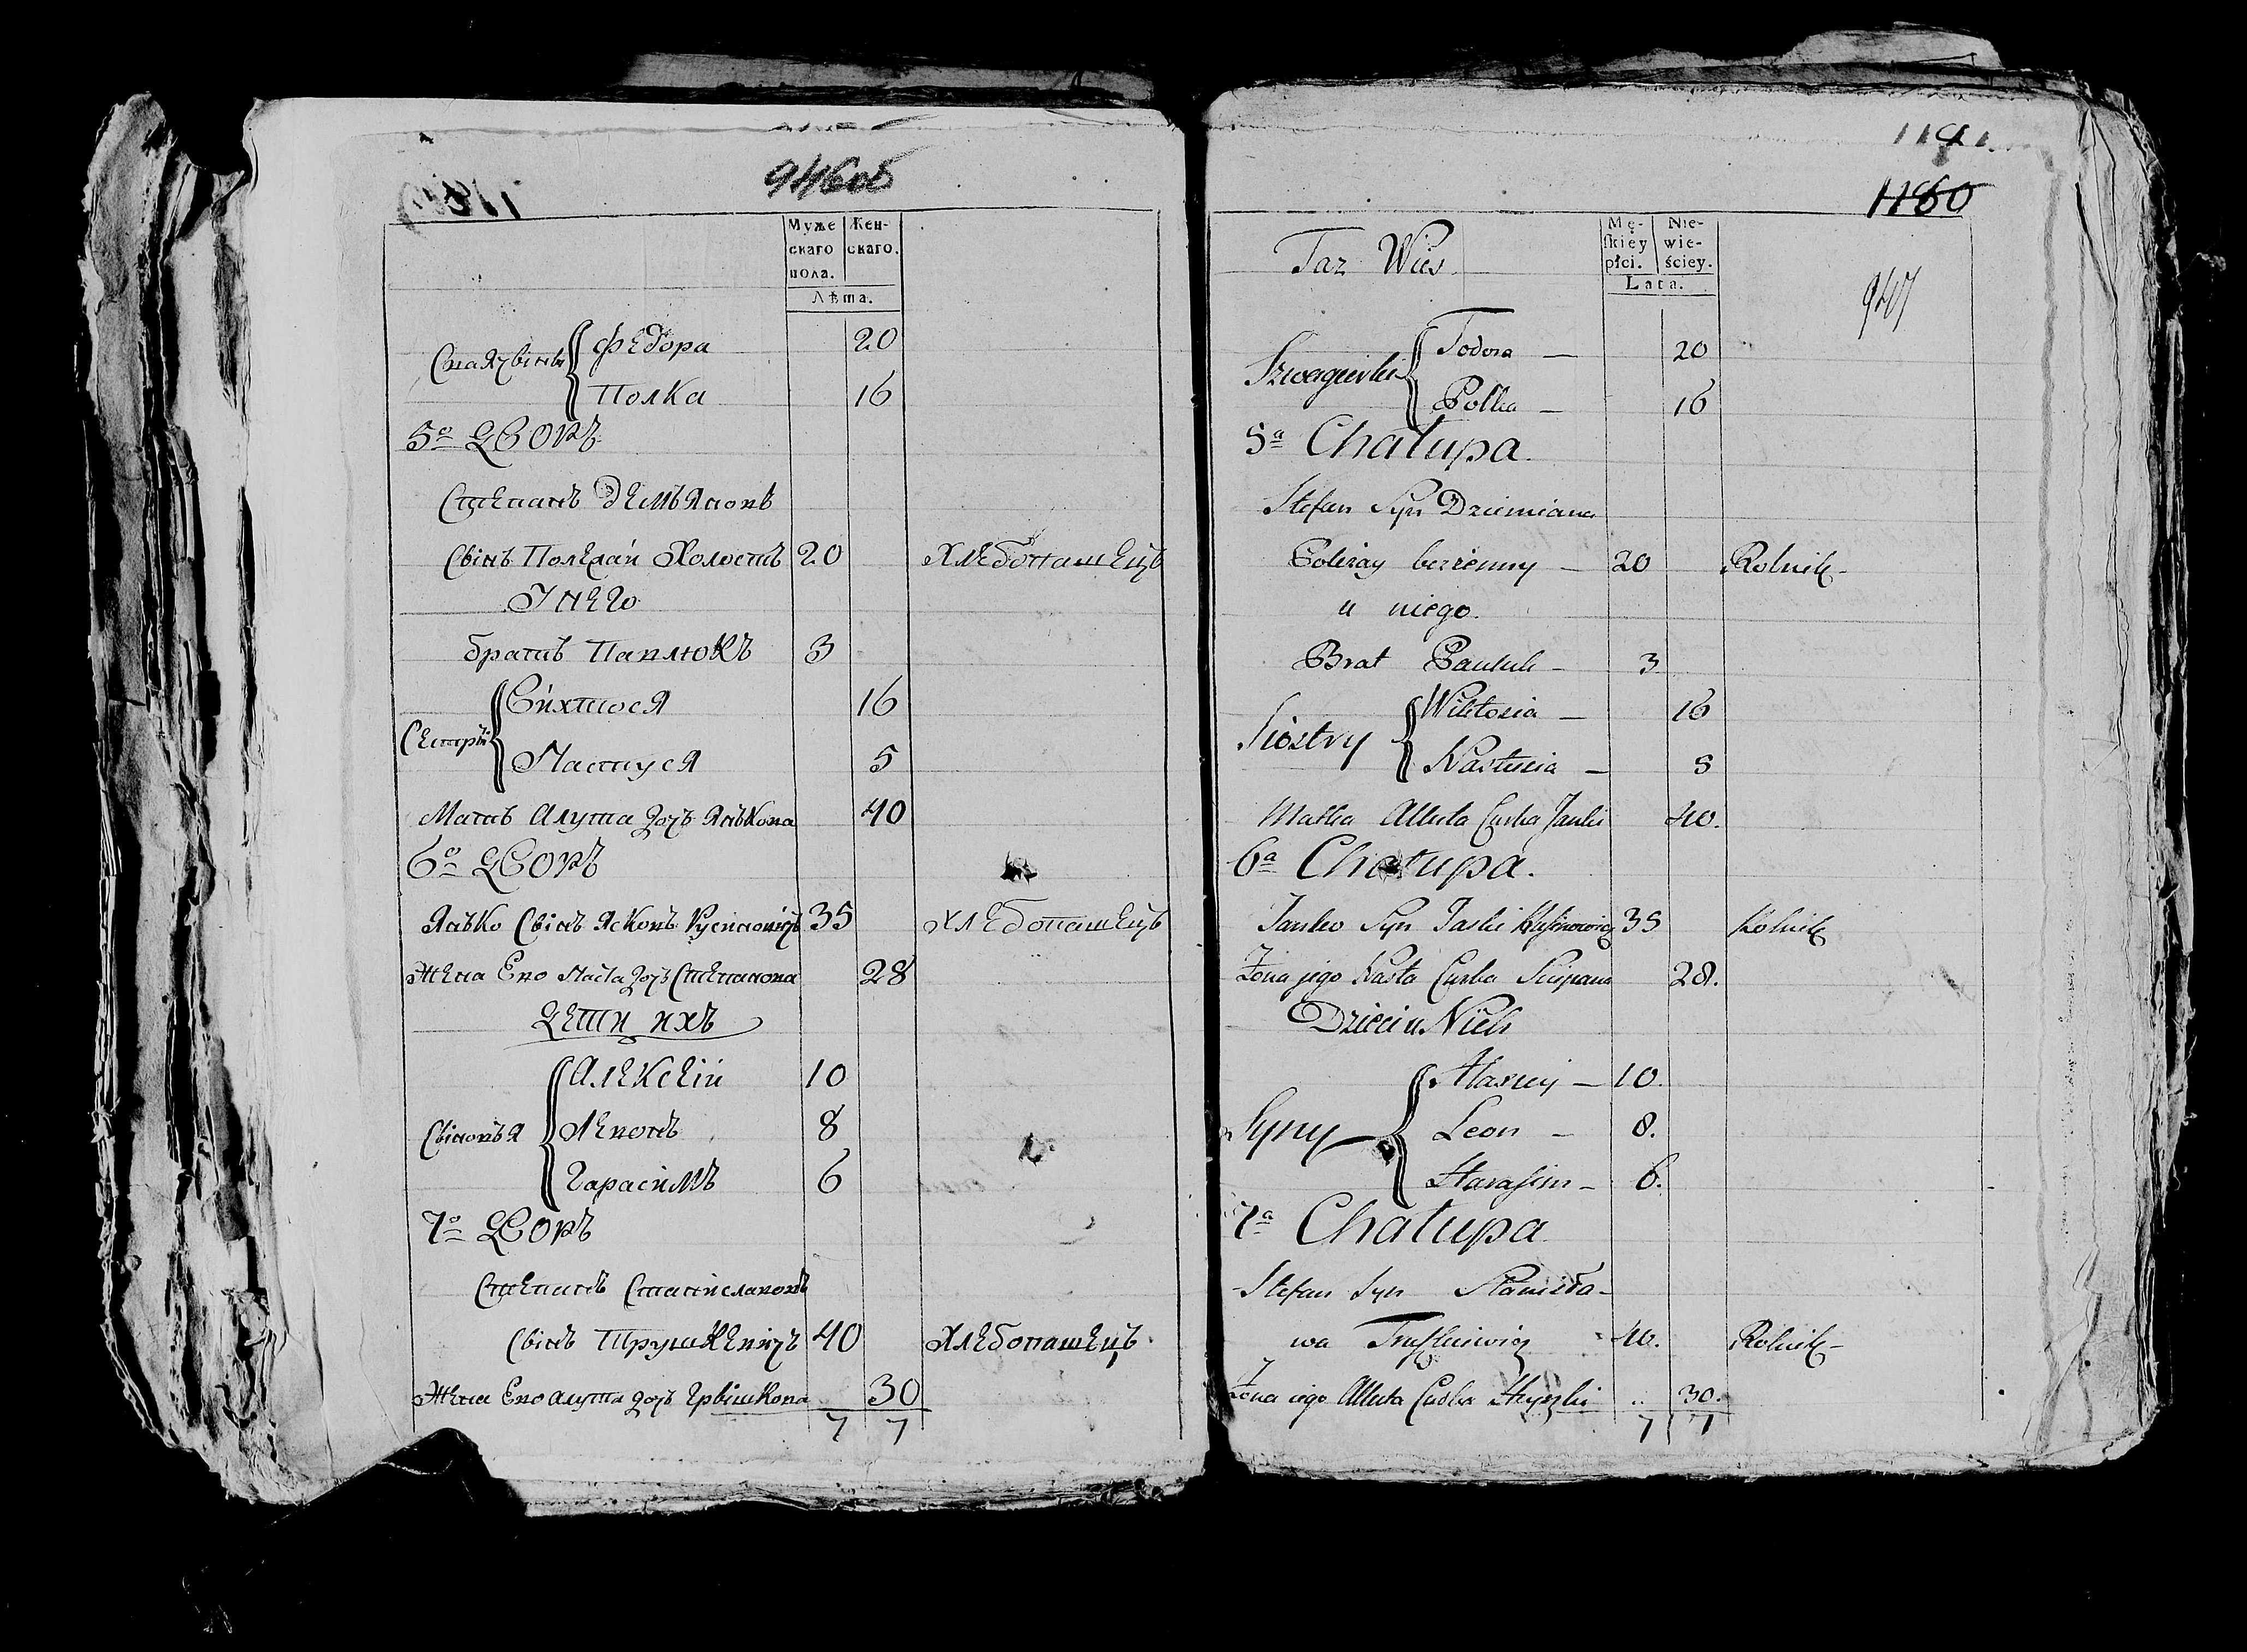 946об
Муже
скаго
пола.
Жен-
скаго.
Лѣта.
Федора 20
Полка 16
5о Дворъ
Степанъ Демьяновъ
Сынъ Полерай Холостъ 20 Хлебопашецъ
У него
братъ Павлюкъ 3
Виктося 16
Сестры
Настуся 5
Мать Алута дочь Янькова 40
6о Дворъ
Янько Сынъ Ясковъ 35 Хлебопашецъ
Жена Ево Наста дочь Степанова 28
Дети ихъ
Алексей 10
Сыновья Левонъ 8
Гарасимъ 6
7о Дворъ
Степанъ Станиславовъ
Сынъ Трушкевичъ 40 Хлебопашецъ
Жена Ево Алута дочь Грышкова 30
7 7
1180
Taz Wieś
Mę-
skiey
płci.
Nie-
wie-
ściey.
Lata.
947
Todora — 20
Szwagierki
Polka — 16
5a Chałupa.
Stefan Syn Dziemiana
Poleray bezżenny — 20 Rolnik —
u niego.
Brat Pauluk — 3
Wiktosia — 16
Siostry
Nastusia — 5
Matka Alluta Curka Jańki 40.
6a Chałupa.
Janko Syn Jaśki 35 Rolnik
Żona jego Nasta Curka Sciepana 28.
Dzieci u Nich
Alaxiej — 10.
Syny Leon — 8.
Harasim — 6.
7a Chałupa
Stefan Syn Stanisła-
wa Truszkiewicz 40. Rolnik —
Żona iego Alluta Curka Hryszki 30.
7 7